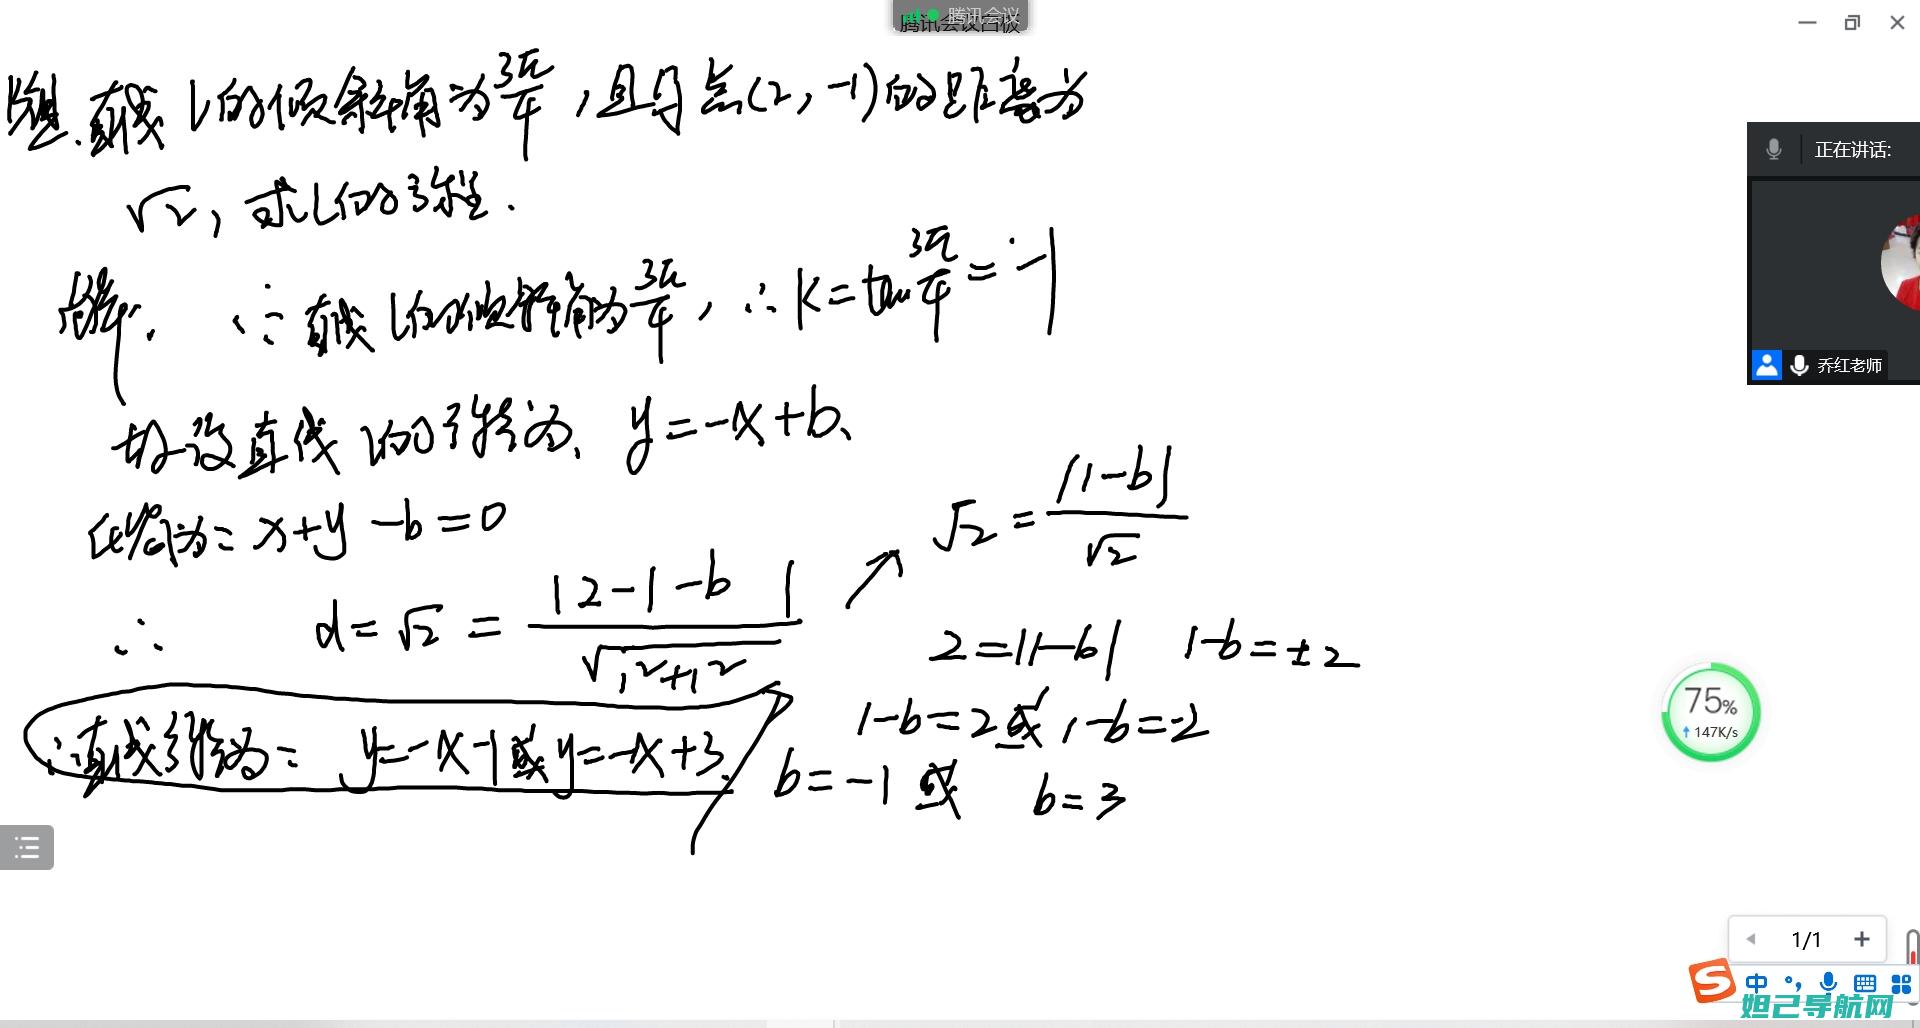 腾讯会议
腾讯会议白板
题.直线l的倾斜角为3π/4,且与点(2,-1)的距离为
√2,求l的方程.
解:∵直线l的倾斜角为3π/4,∴K=tan 3π/4=-1
故设直线l的方程为、y=-x+b、
化简为:x+y-b=0
∴ d=√2=|2-1-b|/√1²+1²
√2=|1-b|/√2
2=|1-b| 1-b=±2
1-b=2或1-b=-2
b=-1或 b=3
∴直线方程为:y=-x-1或y=-x+3.
正在讲话:
乔红老师
75%
147K/s
1/1
中
妲己导航网